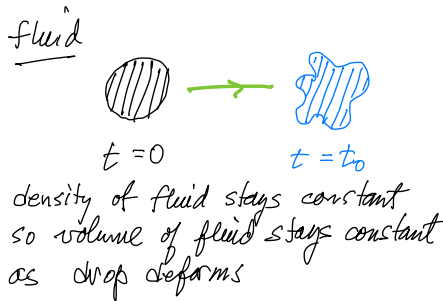 fluid
t = 0
t = t₀
density of fluid stays constant
so volume of fluid stays constant
as drop deforms